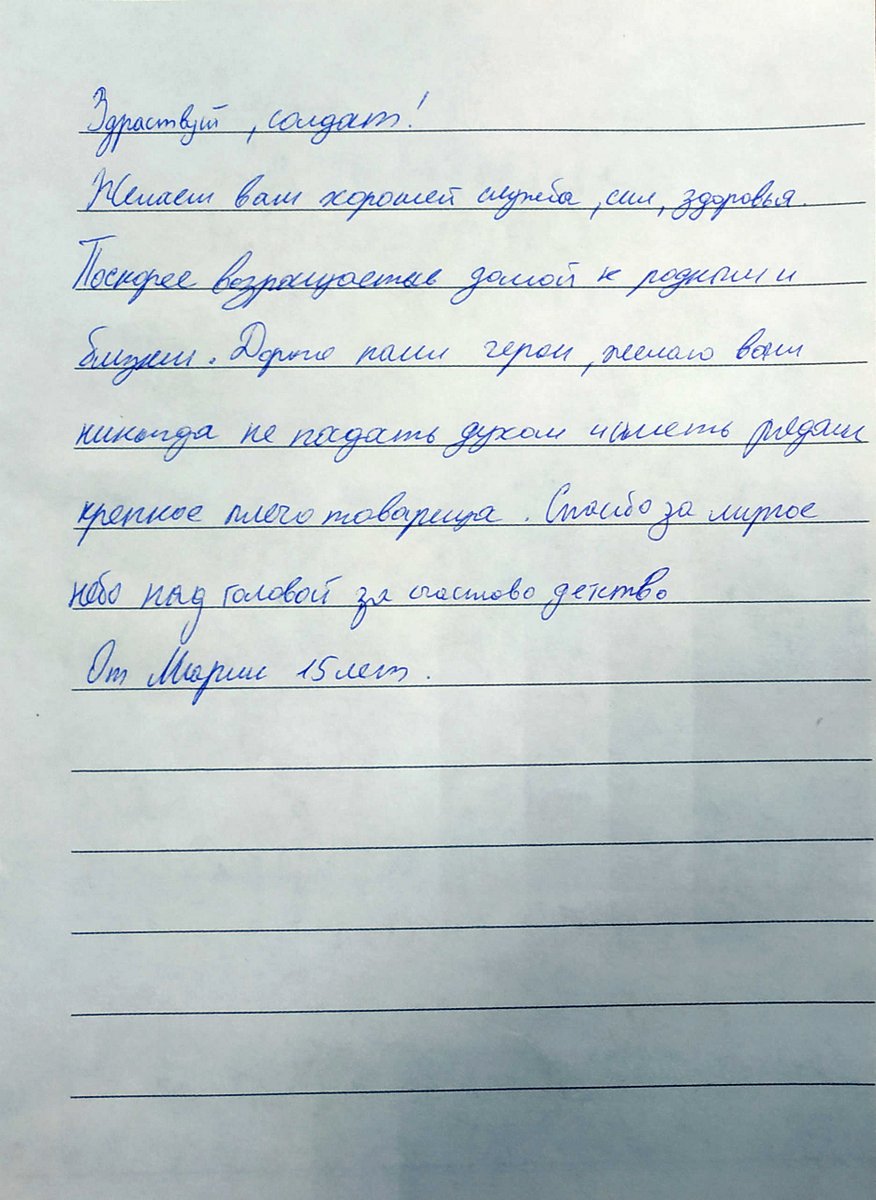 Здраствуй, солдат!
Желаем вам хорошей служба, сил, здоровья.
Поскорее возращаетив домой к родным и
близким. Дорого наши герои, желаю вам
никогда не падать духом и иметь рядом
крепкое плечо товарища. Спасибо за мирное
небо над головой за счастливо детство
От Марии 15 лет.